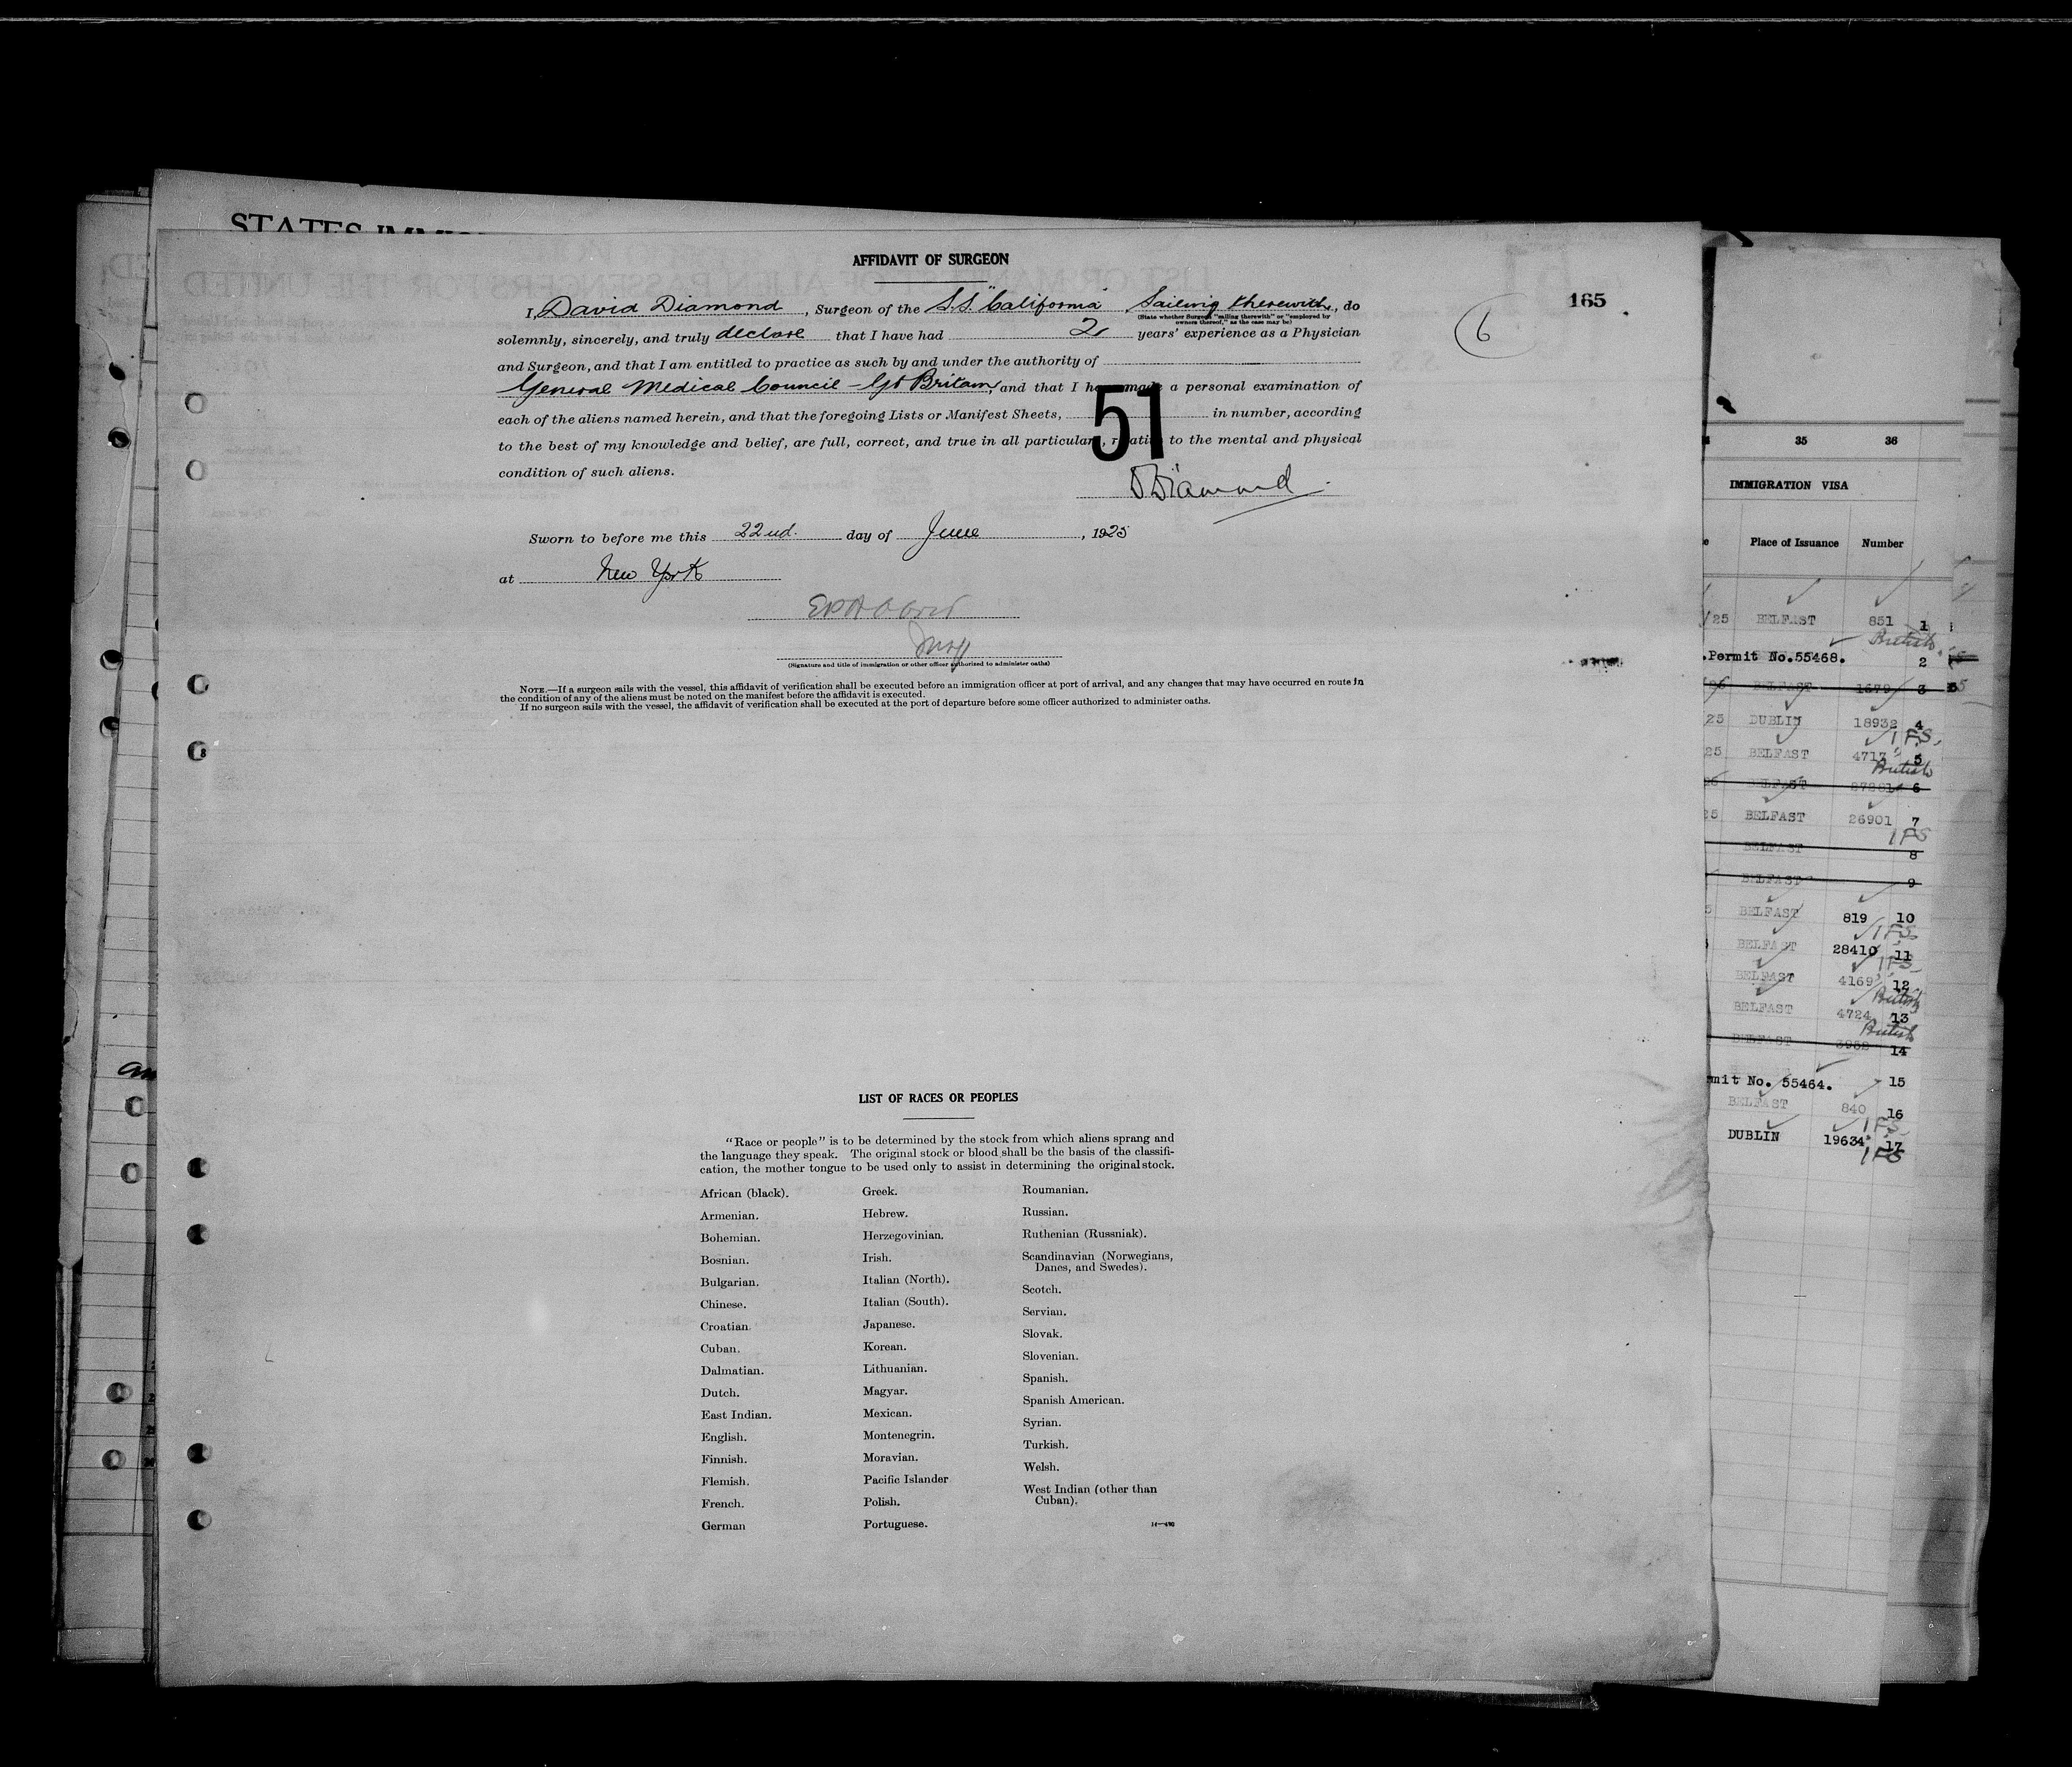 STATES IMMIG
AFFIDAVIT OF SURGEON
165
6
I, David Diamond, Surgeon of the S.S. "California" Sailing therewith, do
(State whether Surgeon "sailing therewith" or "employed by
owners thereof," as the case may be)
solemnly, sincerely, and truly declare that I have had 2 years' experience as a Physician
and Surgeon, and that I am entitled to practice as such by and under the authority of
General Medical Council - Gt Britain, and that I have made a personal examination of
each of the aliens named herein, and that the foregoing Lists or Manifest Sheets, in number, according
51
to the best of my knowledge and belief, are full, correct, and true in all particulars, relative to the mental and physical
condition of such aliens.
D Diamond
Sworn to before me this 22nd. day of June, 1925
at New York
(Signature and title of immigration or other officer authorized to administer oaths)
NOTE.—If a surgeon sails with the vessel, this affidavit of verification shall be executed before an immigration officer at port of arrival, and any changes that may have occurred en route in
the condition of any of the aliens must be noted on the manifest before the affidavit is executed.
If no surgeon sails with the vessel, the affidavit of verification shall be executed at the port of departure before some officer authorized to administer oaths.
LIST OF RACES OR PEOPLES
"Race or people" is to be determined by the stock from which aliens sprang and
the language they speak. The original stock or blood shall be the basis of the classifi-
cation, the mother tongue to be used only to assist in determining the original stock.
African (black).
Armenian.
Bohemian.
Bosnian.
Bulgarian.
Chinese.
Croatian.
Cuban.
Dalmatian.
Dutch.
East Indian.
English.
Finnish.
Flemish.
French.
German
Greek.
Hebrew.
Herzegovinian.
Irish.
Italian (North).
Italian (South).
Japanese.
Korean.
Lithuanian.
Magyar.
Mexican.
Montenegrin.
Moravian.
Pacific Islander
Polish.
Portuguese.
Roumanian.
Russian.
Ruthenian (Russniak).
Scandinavian (Norwegians,
Danes, and Swedes).
Scotch.
Servian.
Slovak.
Slovenian.
Spanish.
Spanish American.
Syrian.
Turkish.
Welsh.
West Indian (other than
Cuban).
35 36
IMMIGRATION VISA
Place of Issuance Number
/25 BELFAST 851 1
British
Permit No.55468. 2
BELFAST 1679 3
25 DUBLIN 18932 4
IFS
25 BELFAST 4717 5
British
BELFAST 6
25 BELFAST 26901 7
IFS
BELFAST 8
BELFAST 9
5 BELFAST 819 10
IFS
BELFAST 28410 11
IFS
BELFAST 4169 12
British
BELFAST 4724 13
British
BELFAST 3962 14
mit No. 55464. 15
BELFAST 840 16
IFS
DUBLIN 19634 17
IFS